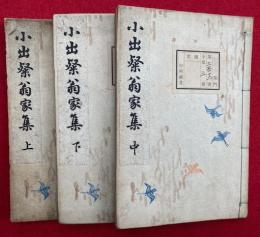 小出粲翁家集 上
小出粲翁家集 下
小出粲翁家集 中